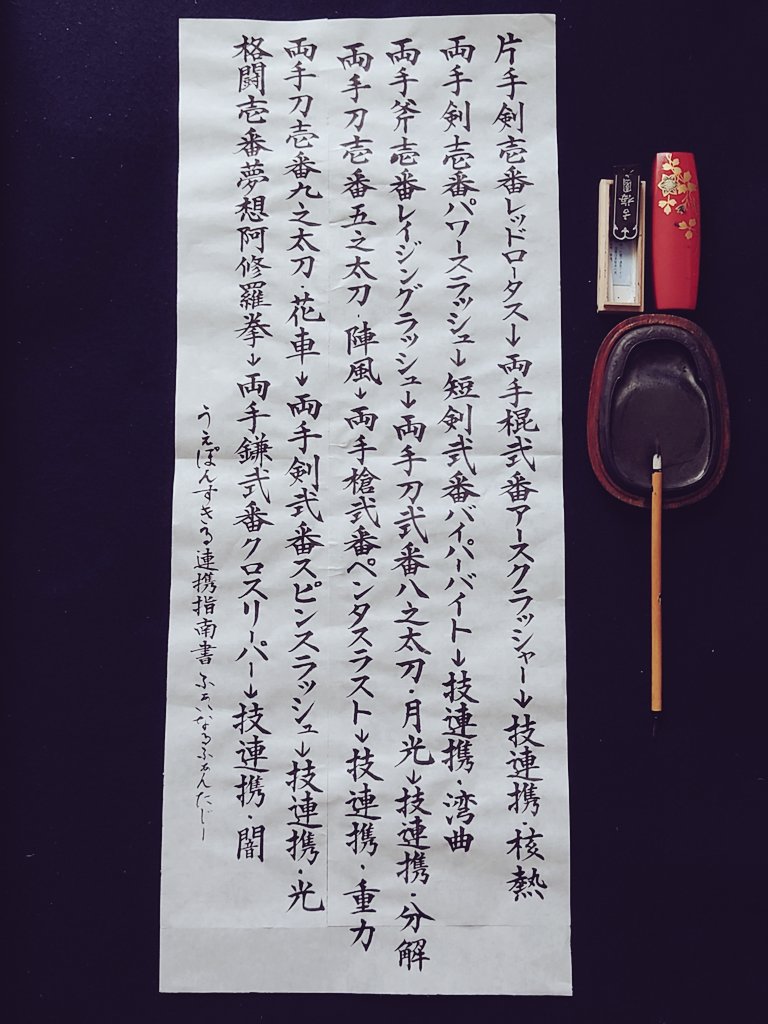 片手剣壱番レッドロータス→両手棍弐番アースクラッシャー→技連携・核熱
両手剣壱番パワースラッシュ→短剣弐番バイパーバイト→技連携・湾曲
両手斧壱番レイジングラッシュ→両手刀弐番八之太刀・月光→技連携・分解
両手刀壱番五之太刀・陣風→両手槍弐番ペンタスラスト→技連携・重力
両手刀壱番九之太刀・花車→両手剣弐番スピンスラッシュ→技連携・光
格闘壱番夢想阿修羅拳→両手鎌弐番クロスリーパー→技連携・闇
うえぽんすきる連携指南書 ふぁいなるふぁんたじー